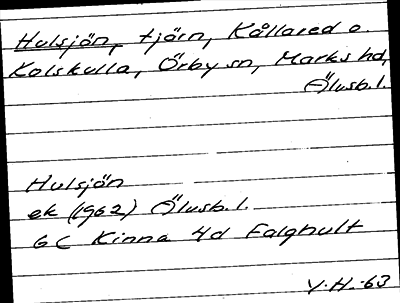 Hulsjön, tjörn, Kållared o.
Kolskulla, Örby sn, Marks hd,
Älvsb. l.
Hulsjön
ek (1962) Älvsb. l.
GC Kinna 4d Falghult
V. H. -63